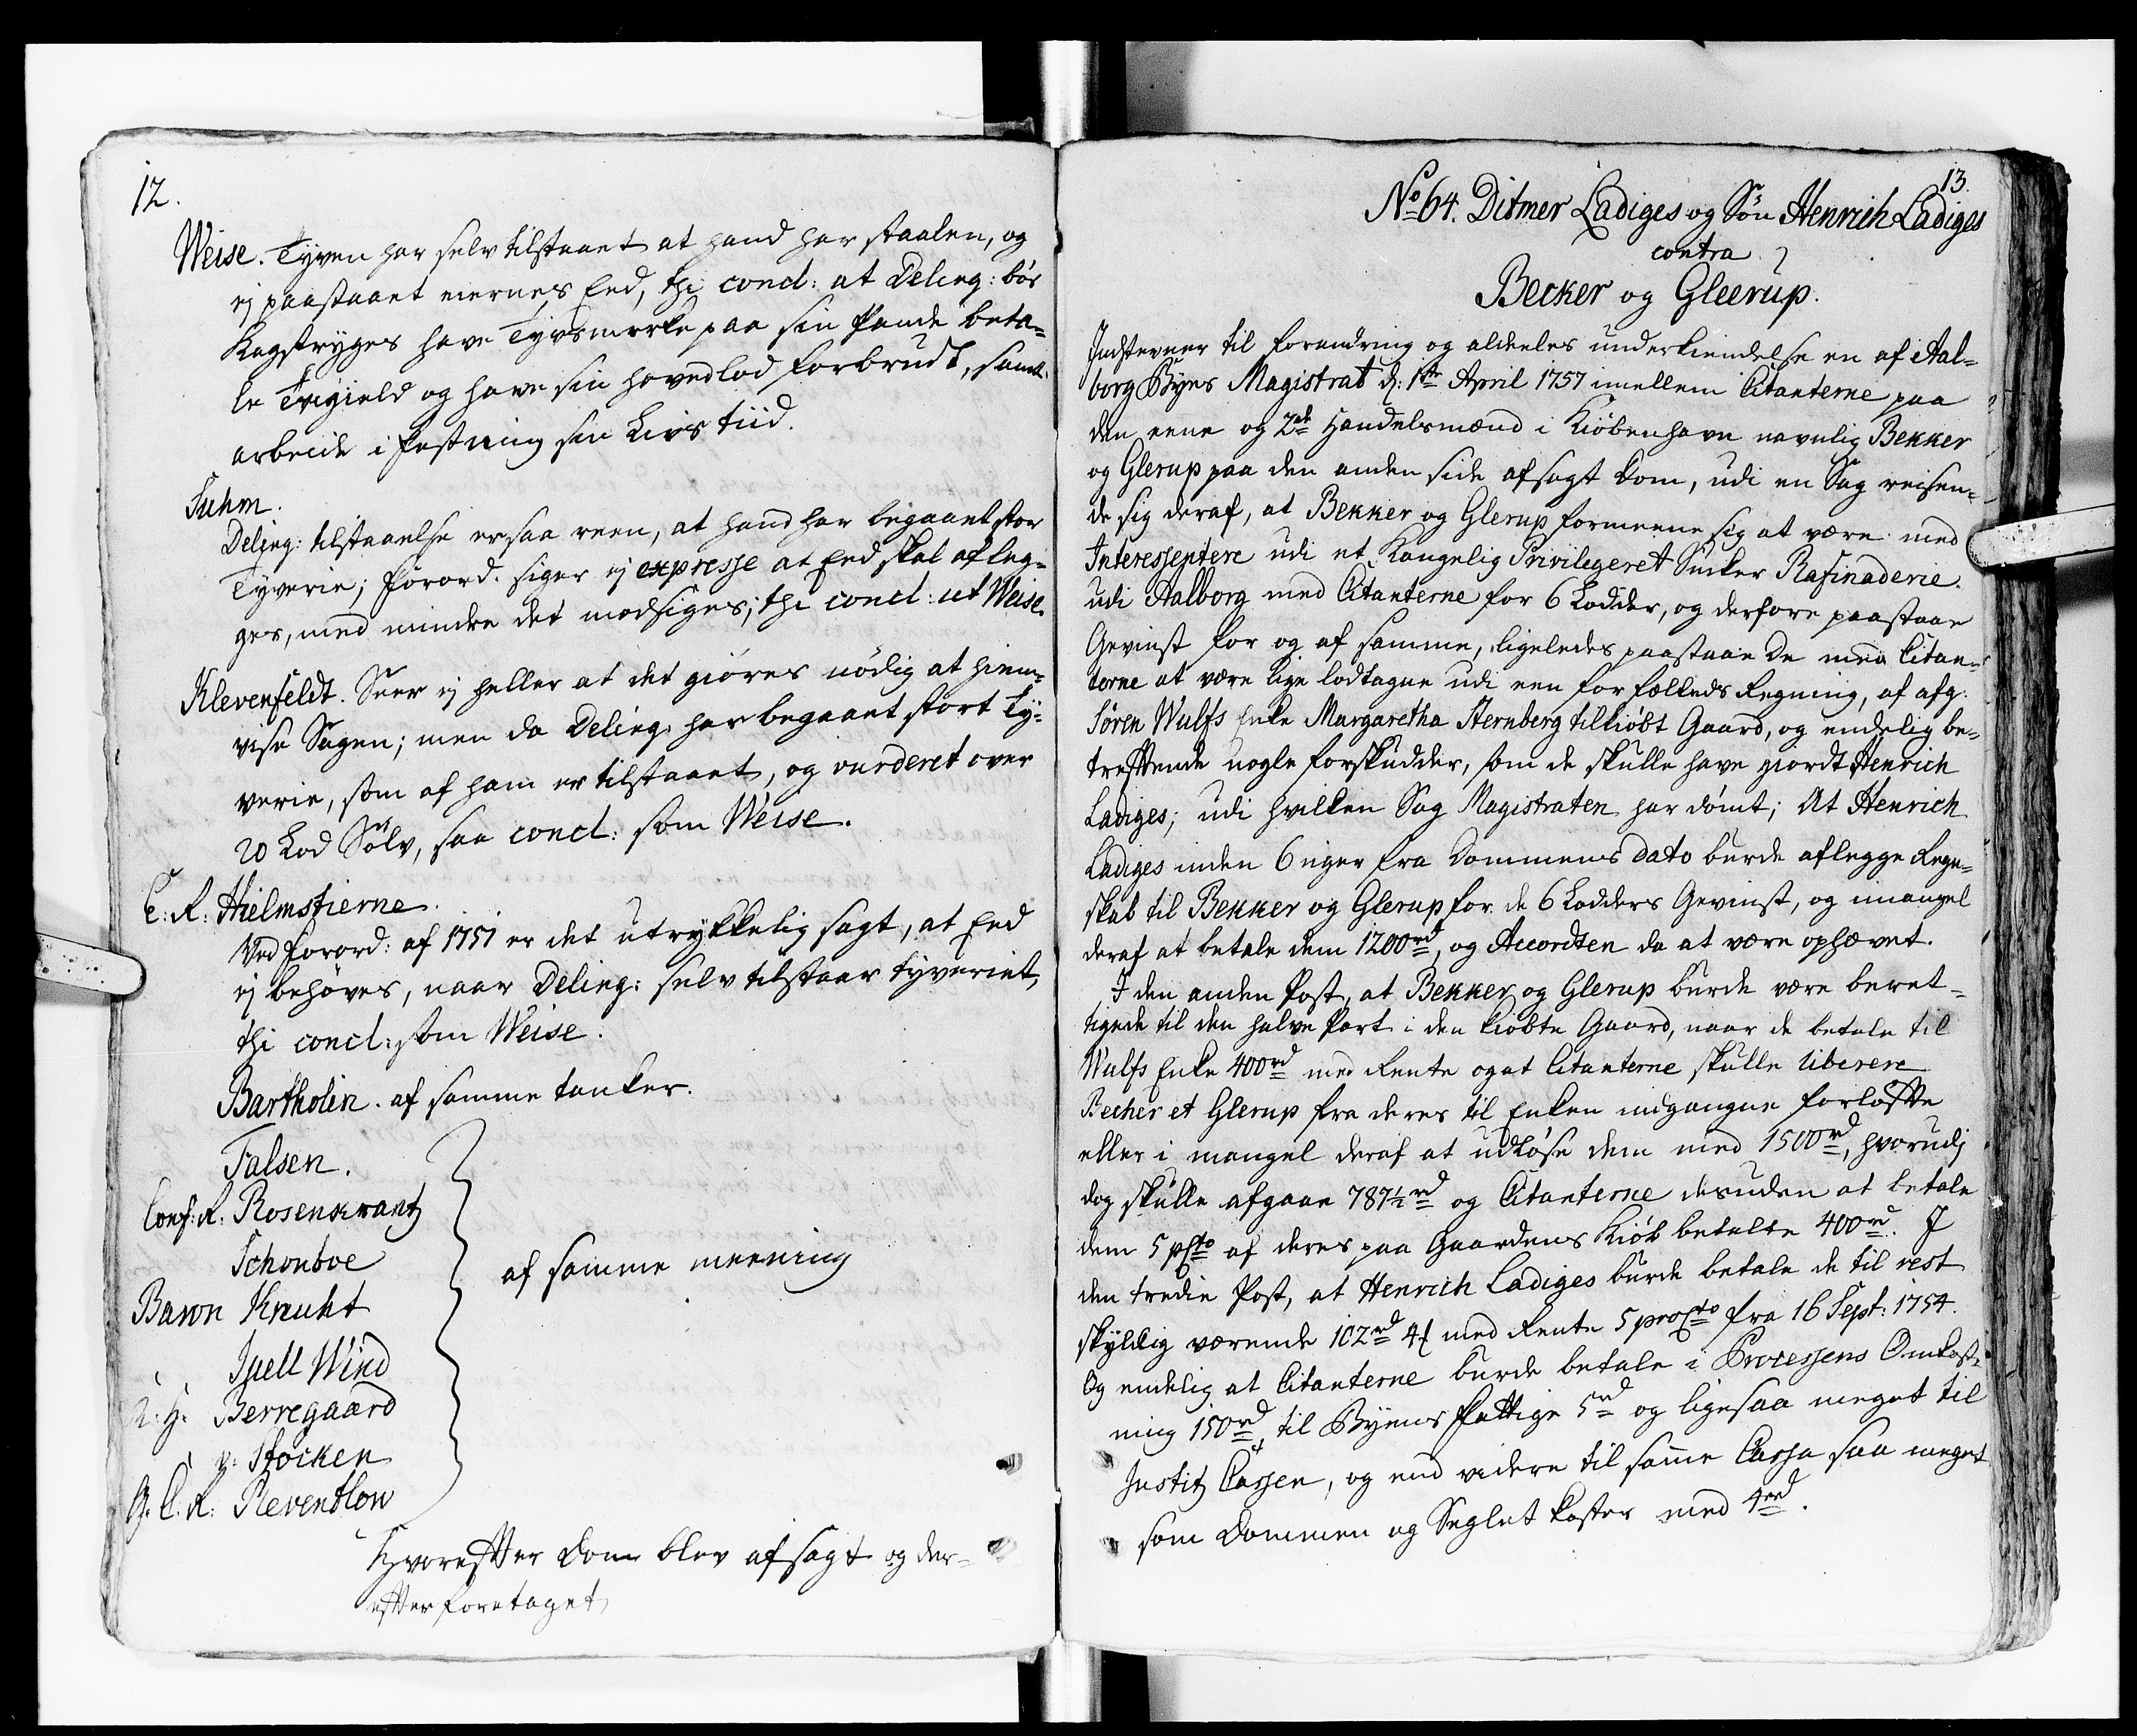 12.
Weise. Tyven har selv tilstaaet at hand har staalen, og
ej paastaaet eiernes Eed, thi concl: at Delinq: bör
Kagstryges have Tyvsmerke paa sin Pande beta-
le Tvigield og have sin hovedlod forbrudt, samt
arbeide i Festning sin Livs tiid.
Suhm.
Delinq: tilstaaelse er saa reen, at hand har begaaet stor
Tyverie; Forord. siger ej expresse at Eed skal afleg-
ges, med mindre det modsiges; thi concl: ut Weise.
Klevenfeldt. Seer ej heller at det giöres nödig at hiem-
vise Sagen; men da Delinq: har begaaet stort Ty-
verie, som af ham er tilstaaet, og vurderet over
20 Lod Sölv, saa concl: som Weise.
E: R: Hielmstierne.
Ved Forord: af 1751 er det utrykkelig sagt, at Eed
ej behøves, naar Delinq: selv tilstaar tyveriet,
thi concl: som Weise.
Bartholin. af samme tanker.
Falsen.
Conf: R: Rosenkrantz
Schouboe
af samme meening
Baron Knuht
Juell Wind
K: H: Berregaard
v: Stöcken
G. C. R: Reventlow
Hvorefter Dom blev afsagt og der-
efter foretaget
13.
No 64. Ditmer Ladiges og Sön Henrich Ladiges
contra
Becker og Gleerup.
Indstevner til forandring og aldeeles underkiendelse en af Aal-
borg Byes Magistrat d: 1ste April 1757 imellem Citanterne paa
den eene og 2de Handelsmænd i Kiöbenhavn navnlig Bekker
og Glerup paa den anden side afsagt Dom, udi en Sag reisen-
de sig deraf, at Bekker og Glerup formeene sig at være med
Interessentere udi et Kongelig Privilegeret Sucker Rafinaderie
udi Aalborg med Citanterne for 6 Lodder, og derfore paastaae
Gevinst for og af samme, ligeledes paastaae De med Citan-
terne at være lige lodtagne udi een for fælleds Regning, af afg:
Sören Wulfs Enke Margaretha Sternberg tilkiöbt Gaard, og endelig be-
treffende nogle forskudder, som de skulle have giordt Henrich
Ladiges; udi hvilken Sag Magistraten har dömt; At Henrich
Ladiges inden 6 uger fra Dommens Dato burde aflegge Regn-
skab til Bekker og Glerup for de 6 Lodders Gevinst, og i mangel
deraf at betale dem 1200 rd, og Accordten da at være ophævet.
I den anden Post, at Bekker og Glerup burde være beret-
tigede til den halve Part i den kiöbte Gaard, naar de betale til
Wulfs Enke 400 rd med Rente og at Citanterne skulle liberere
Becher et Glerup fra deres til Enken indgangne Forløfte
eller i mangel deraf at udlöse dem med 1500 rd, hvorudj
dog skulle afgaae 787½ rd og Citanterne desuden at betale
dem 5 pCto af deres paa Gaardens Kiöb betalte 400 rd. I
den tredie Post, at Henrich Ladiges burde betale de til rest
skyldig værende 102 rd 4 ß med Rente 5 proCto fra 16 Sept: 1754.
Og endelig at Citanterne burde betale i Processens Omkost-
ning 150 rd, til Byens Fattige 5 rd og ligesaa meget til
Justitz Cassen, og end videre til samme Cassa saa meget
som Dommen og Seglet koster med 4 rd.